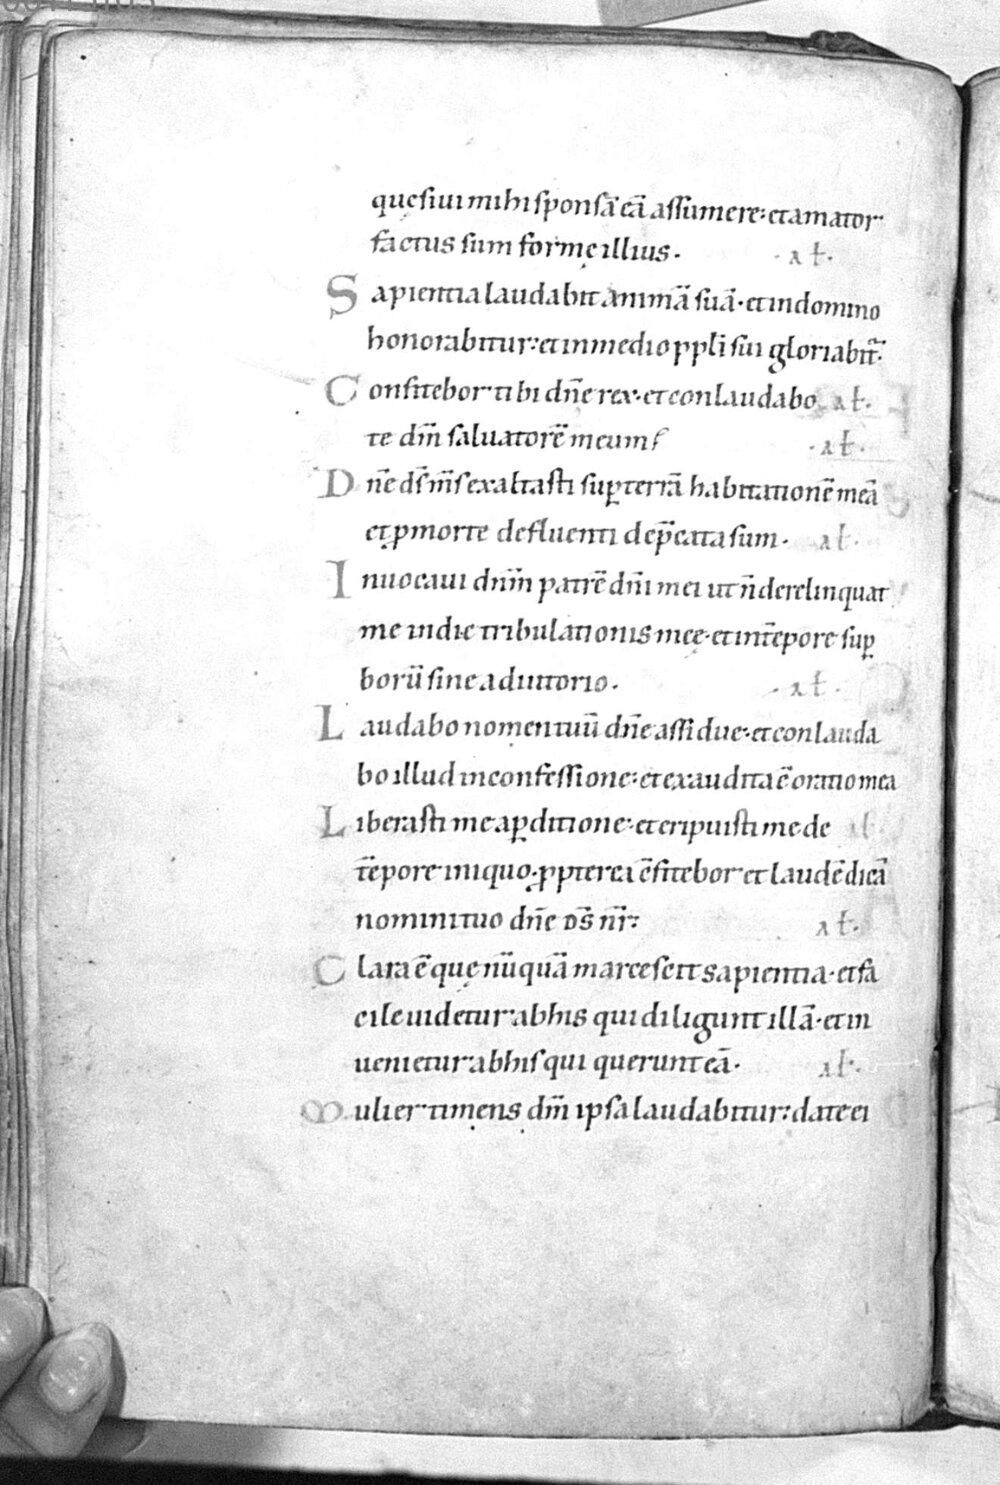 quęsiui mihi sponsā eā assumere: et amator
factus sum formę illius. · ał ·
Sapientia laudabit animā suā · et in domino
honorabitur: et in medio ppłi sui gloriabit̄.
Confitebor tibi dn̄e rex · et conlaudabo · ał ·
te dm̄ saluatorē meum · ał ·
Dn̄e ds̄ m̄s exaltasti sup̱ terrā habitationē meā
et p̱ morte defluenti dep̄cata sum. · ał ·
Inuocaui dnm̄ patrē dn̄i mei ut n̄ derelinquat
me in die tribulationis meę · et in tēpore sup̱
borū sine adiutorio. · ał ·
Laudabo nomen tuū dn̄e assidue · et conlauda
bo illud in confessione: et exaudita ē oratio mea
Liberasti me a p̱ditione · et eripuisti me de ał ·
tēpore iniquo · ꝓpterea c̄fitebor et laudē dicā
nomini tuo dn̄e ds̄ nr̄: ał ·
Clara ē quę nūquā marcescit sapientia · et fa
cile uidetur ab his qui diligunt illā · et in
uenietur ab his qui querunt eā · ał ·
Mulier timens dm̄ ipsa laudabitur: date ei